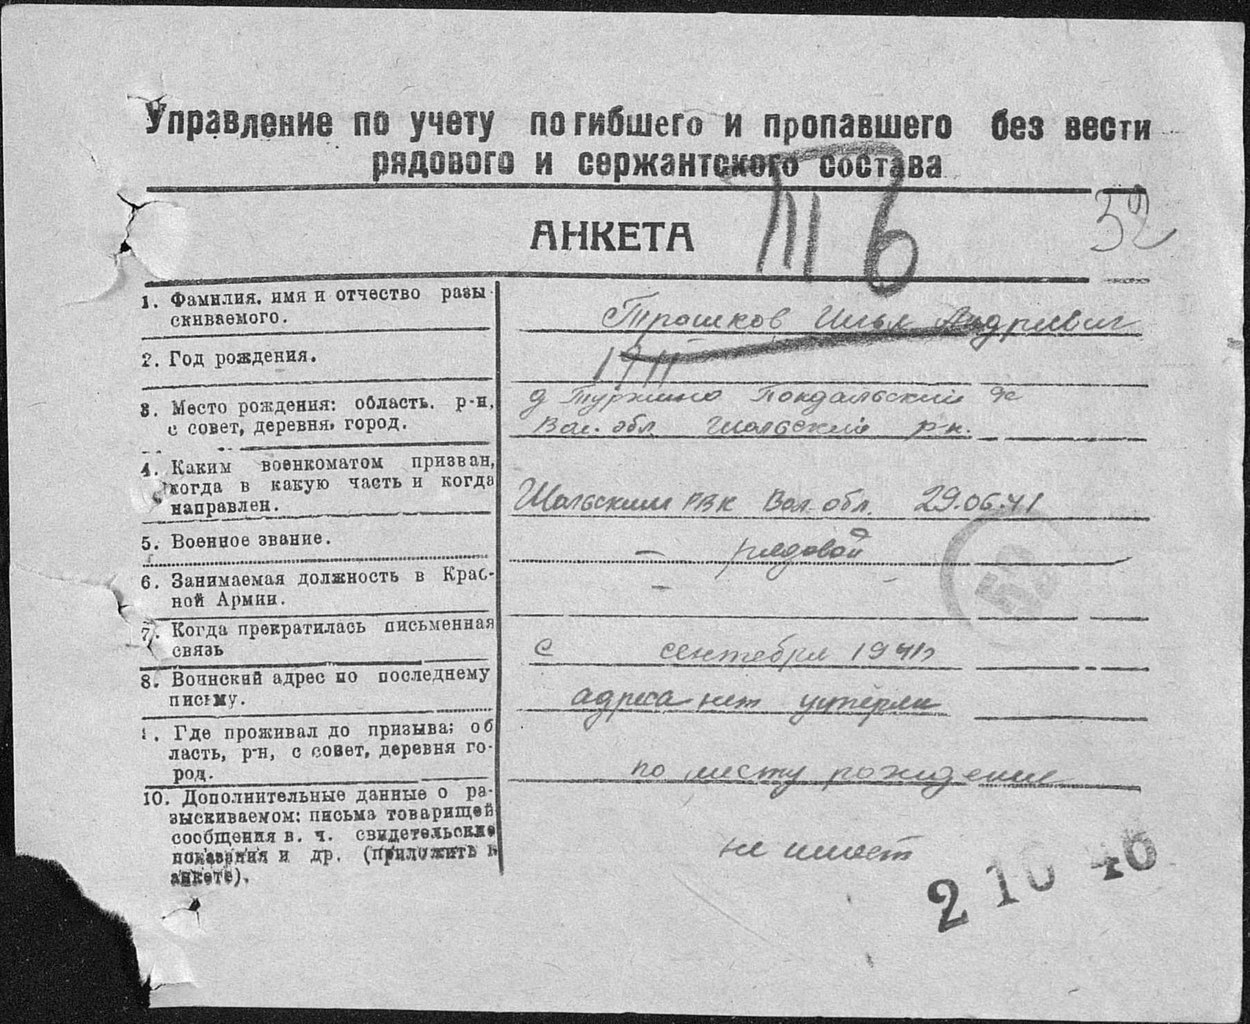 Управление по учету погибшего и пропавшего без вести
рядового и сержантского состава
32
АНКЕТА
1. Фамилия, имя и отчество разы-
скиваемого.
Трошков Илья Андриевич
2. Год рождения.
1911
3. Место рождения: область. р-н,
с совет, деревня, город.
д Туржино Покдальский
Вол. обл. Шольский р-н.
4. Каким военкоматом призван,
когда в какую часть и когда
направлен.
Шольским РВК Вол. обл. 29.06.41
5. Военное звание.
— рядовой
6. Занимаемая должность в Крас-
ной Армии.
— —
7. Когда прекратилась письменная
связь
с сентября 1941
8. Воинский адрес по последнему
письму.
адреса нет утеряли
. Где проживал до призыва; об
ласть, р-н, с совет, деревня го-
род.
по месту рождение
10. Дополнительные данные о ра-
зыскиваемом: письма товарищей
сообщения в. ч. свидетельские
показания и др. (приложить к
анкете).
не имеет
2 10 46